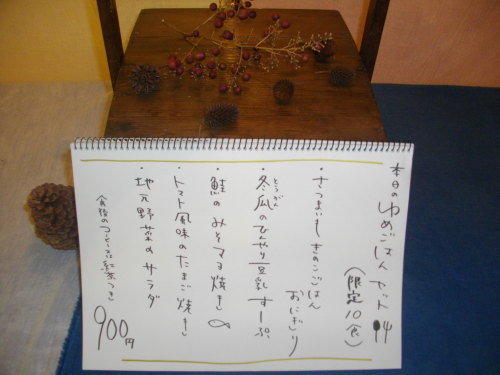 本日の ゆめごはん セット
(限定10食)
・さつまいもときのこごはん
おにぎり
とうがん
・冬瓜のひんやり豆乳すーぷ。
・鮭のみそマヨ焼き
・トマト風味のたまご焼き
・地元野菜のサラダ
(食後のコーヒー又は紅茶つき)
900円